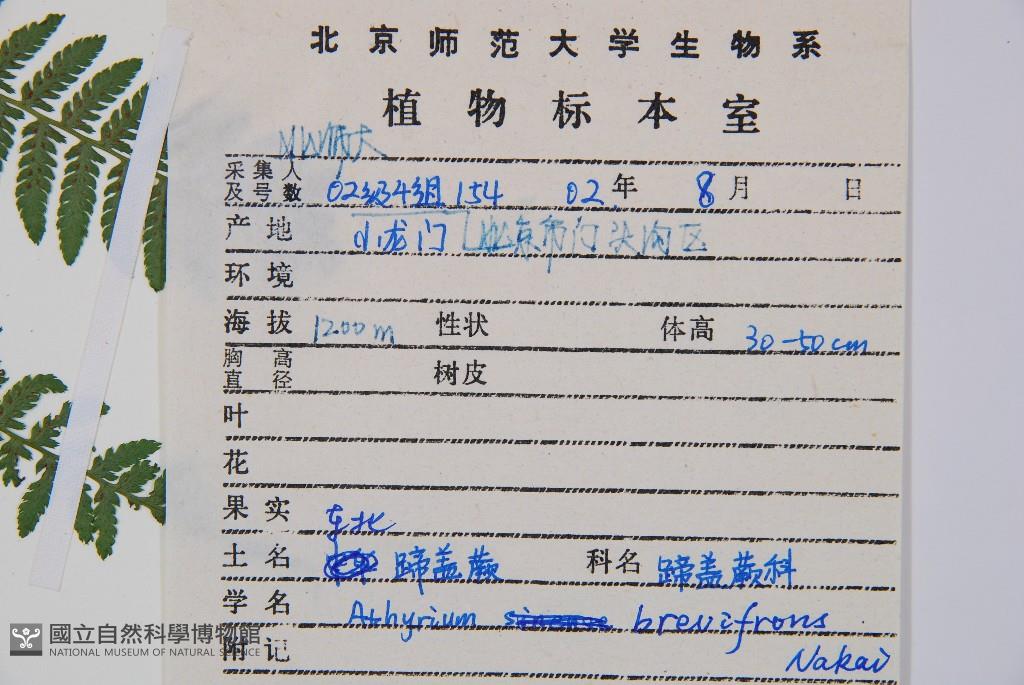 北京师范大学生物系
植物标本室
采集人
及号数 02级4组 154 02 年 8 月 日
产地 小龙门 北京市门头沟区
环境
海拔 1200m 性状 体高 30-50cm
胸高
直径 树皮
叶
花
果实
东北
土名 蹄盖蕨 科名 蹄盖蕨科
学名 Athyrium brevifrons
Nakai
附记
國立自然科學博物館
NATIONAL MUSEUM OF NATURAL SCIENCE